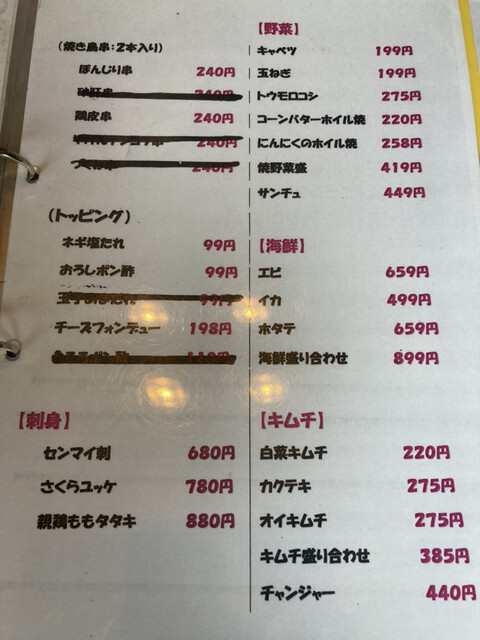 (焼き鳥串:2本入り)
ぼんじり串 240円
砂肝串 240円
鶏皮串 240円
240円
240円
(トッピング)
ネギ塩たれ 99円
おろしポン酢 99円
99円
チーズフォンデュー 198円
【刺身】
センマイ刺 680円
さくらユッケ 780円
親鶏ももタタキ 880円
【野菜】
キャベツ 199円
玉ねぎ 199円
トウモロコシ 275円
コーンバターホイル焼 220円
にんにくのホイル焼 258円
焼野菜盛 419円
サンチュ 449円
【海鮮】
エビ 659円
イカ 499円
ホタテ 659円
海鮮盛り合わせ 899円
【キムチ】
白菜キムチ 220円
カクテキ 275円
オイキムチ 275円
キムチ盛り合わせ 385円
チャンジャー 440円